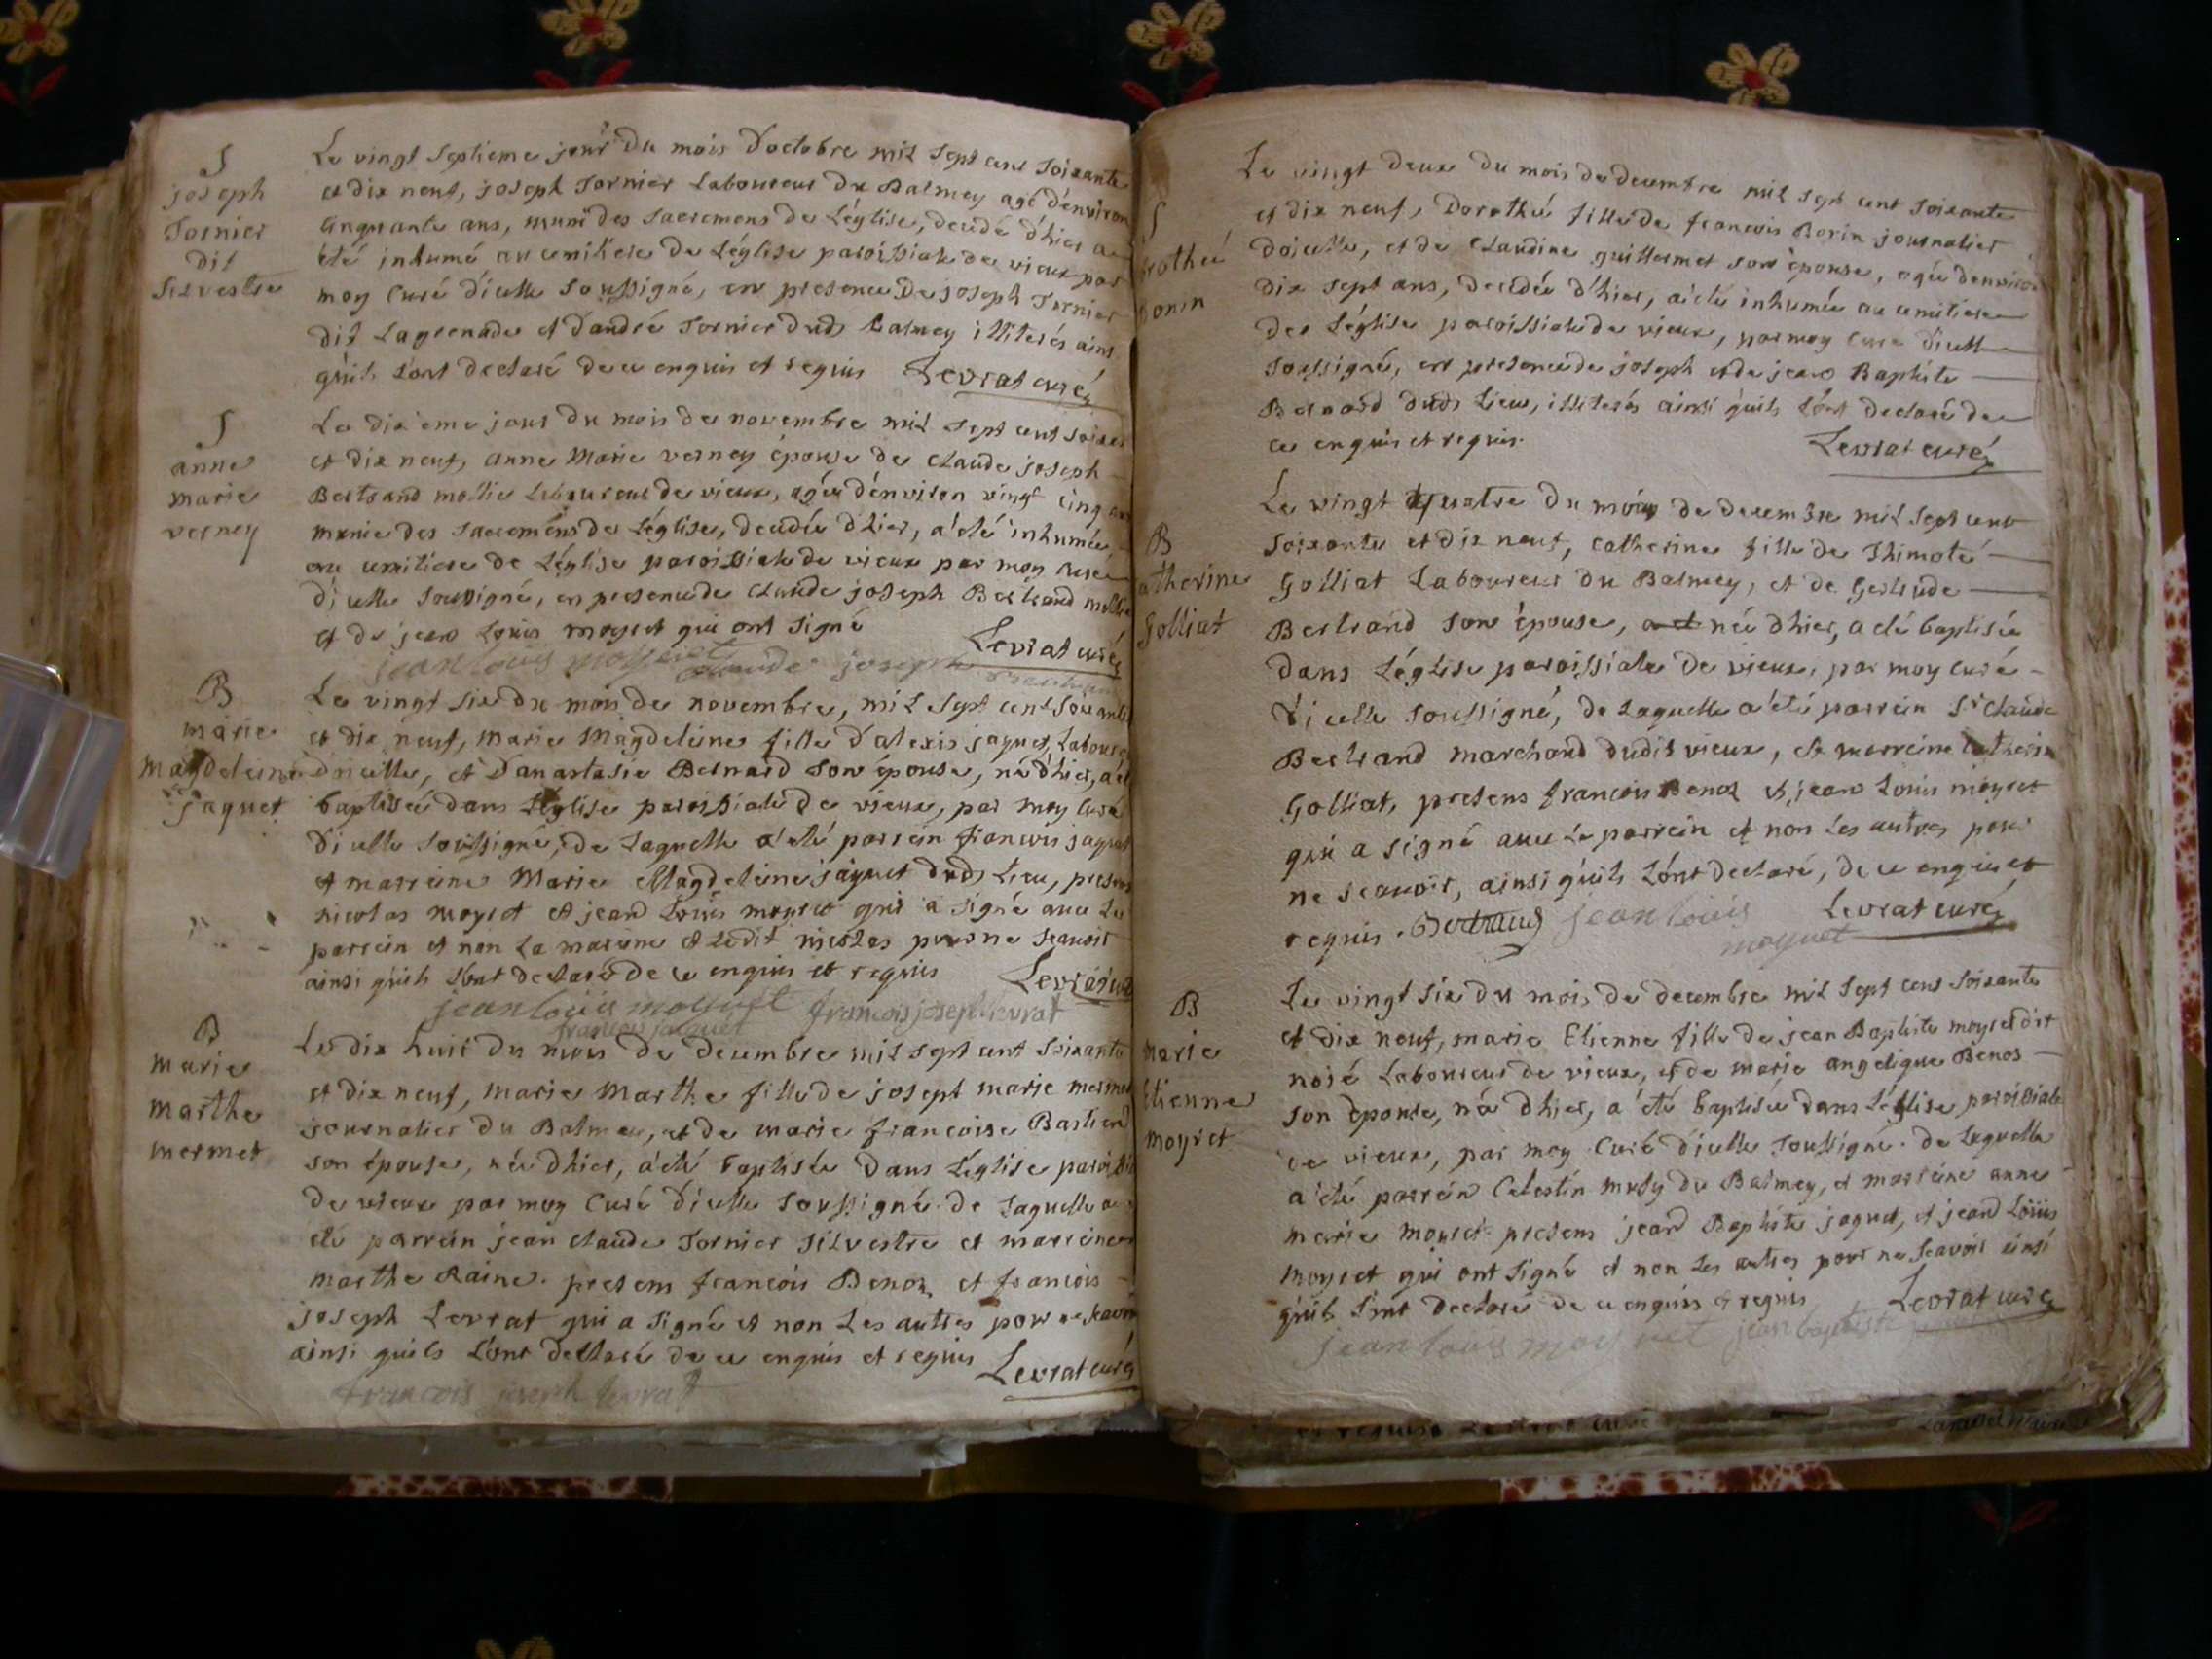 S
joseph
Tornier
dit
Silvestre
Le vingt Septieme jour du mois d'octobre mil Sept cent Soixante
et dix neuf, joseph Tornier Laboureur du Balmey agé d'environ
Cinquante ans, muni des Sacremens de L'église, decedé d'hier a
été inhumé au cemitiere de L'église paroissiale de vieux par
moy Curé d'icelle Soussigné, en presence de joseph Tornier
dit Lagrenade et d'andré Tornier dud. Balmey illiterés ainsi
qu'ils L'ont declaré de ce enquis et requis Levrat curé
S
anne
marie
verney
Le dixieme jour du mois de novembre mil Sept cent soixan
et dix neuf, anne Marie verney épouse de Claude joseph
Bertrand mollie Laboureur de vieux, agée d'environ vingt cinq ans
munie des Sacremens de L'église, decedée d'hier, a été inhumée
au cemitiere de L'église paroissiale de vieux par moy curé
d'icelle Soussigné, en presence de Claude joseph Bertrand mollie
et de jean Louis moyret qui ont signé
Levrat curé
jean louis moyret claude joseph
B
marie
magdeleine
jaquet
Le vingt six du mois de novembre, mil Sept cent Soixante
et dix neuf, Marie Magdeleine fille d'alexis jaquet, Laboure
d'icelle, et d'anastasie Bernard son épouse, née d'hier, a été
baptisée dans L'église paroissiale de vieux, par moy Curé
d'icelle Soussigné, de Laquelle a été parrein francois jaquet
et marreine Marie Magdeleine jaquet dud. Lieu, presens
nicolas moyret et jean Louis moyret qui a signé avec Le
parrein et non La mareine et Ledit nicolas pour ne Scavoir
ainsi qu'ils L'ont declaré de ce enquis et requis Levrat curé
jean louis moyret francois joseph levrat
francois jacquet
B
marie
marthe
mermet
Le dix huit du mois de decembre mil sept cent Soixante
et dix neuf, marie Marthe fille de joseph marie mermet
journalier du Balmey, et de marie francoise Bastien
son épouse, née d'hier, a été baptisée dans L'église paroissiale
de vieux par moy Curé d'icelle Soussigné. de Laquelle a
été parrein jean claude Tornier Silvestre et marreine
marthe Raine. presens francois Benoz et francois
joseph Levrat qui a signé et non Les autres pour ne Scavoir
ainsi qu'ils L'ont declaré de ce enquis et requis Levrat curé
francois joseph levrat
S
rothée
onin
Le vingt deux du mois de decembre mil sept cent Soixante
et dix neuf, Dorothée fille de francois Borin journalier
d'icelle, et de Claudine guillermet son épouse, agée d'environ
dix sept ans, decedée d'hier, a été inhumée au cemitiere
de L'église paroissiale de vieux, par moy Curé d'icelle
Soussigné, en presence de joseph et de jean Baptiste
Bernard dud. Lieu, illiterés ainsi qu'ils L'ont declaré de
ce enquis et requis. Levrat curé
B
atherine
Golliat
Le vingt quatre du mois de decembre mil Sept cent
Soixante et dix neuf, Catherine fille de Thimoté
Golliat Laboureur du Balmey, et de Gertrude
Bertrand son épouse, née d'hier, a été baptisée
dans L'église paroissiale de vieux, par moy Curé
d'icelle Soussigné, de Laquelle a été parrein Sr Claude
Bertrand marchand dudit vieux, et marreine Catherine
Golliat, presens francois Benoz et jean Louis moyret
qui a signé avec Le parrein et non Les autres pour
ne scavoir, ainsi qu'ils L'ont declaré, de ce enquis et
requis. Bertrand jean louis Levrat curé
moyret
B
marie
Etienne
moyret
Le vingt six du mois de decembre mil sept cent Soixante
et dix neuf, marie Etienne fille de jean Baptiste moyret dit
noié Laboureur de vieux, et de marie angelique Benos
son épouse, née d'hier, a été baptisée dans L'église paroissiale
de vieux, par moy Curé d'icelle Soussigné. de Laquelle
a été parrein Celestin musy du Balmey, et marreine anne
marie moyret presens jean Baptiste jaquet, et jean Louis
moyret qui ont signé et non Les autres pour ne Scavoir ainsi
qu'ils L'ont declaré de ce enquis et requis Levrat curé
jean louis moyret jean baptiste